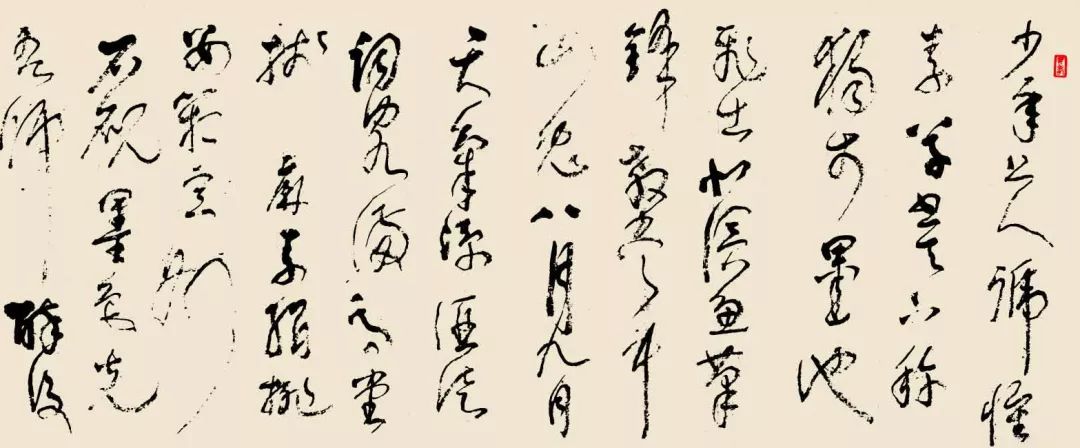 少年上人號懷
素草書天下称
獨步墨池
飛出北溟魚筆
鋒殺盡中
山兔八月九月
天氣凉酒徒
詞客滿高堂
牋麻素絹排
數箱宣州
石硯墨色光
吾師醉後